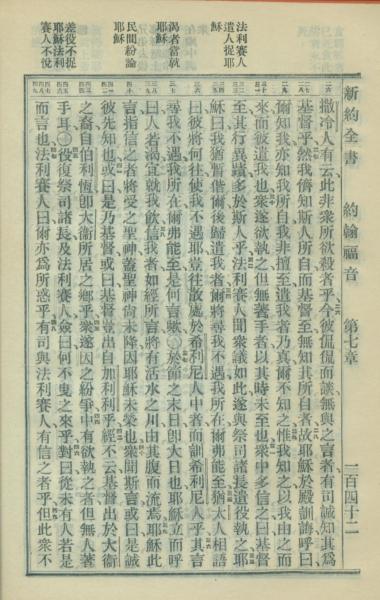 新約全書 約翰福音 第七章 一百四十二
法利賽人
遣人捉耶
穌
渴者當就
耶穌
民間紛論
耶穌
差役不捉
耶穌法利
賽人不悅
撒冷人有云此非衆所欲殺者乎今彼侃侃而談無與之言者有司誠知其爲
基督乎然我儕知斯人所自而基督至無知其所自者故耶穌於殿訓誨呼曰
爾知我亦知我所自我非擅至遣我者乃真爾不知之惟我知之以我由之而
來而彼遣我也衆遂欲執之但無著手者以其時未至也衆中多信之曰基督
至其行異蹟多於斯人乎法利賽人聞衆議如此遂與祭司諸長遣役執之耶
穌曰我猶暫偕爾後歸遣我者爾將尋我不遇我所在爾弗能至猶太人相語
曰彼將何往使我不遇耶豈往散處於希利尼人中者而訓希利尼人乎其言
尋我不遇我所在爾弗能至是何言歟○於節之末日卽大日也耶穌立而呼
曰人若渴宜就我飲信我者如經所言將有活水之川由其腹而流焉耶穌此
言指信之者將受之聖神蓋聖神尙未降因耶穌未榮也衆聞斯言或曰是誠
彼先知也或曰是乃基督或曰基督豈出自加利利乎經不云基督出於大衞
之裔自伯利恆卽大衞所居之鄉乎衆遂因之紛爭中有欲執之者但無人著
手耳○役復祭司諸長及法利賽人僉曰何不曳之來乎對曰從未有人若是
而言也法利賽人曰爾亦爲所惑乎有司與法利賽人有信之者乎但此衆不